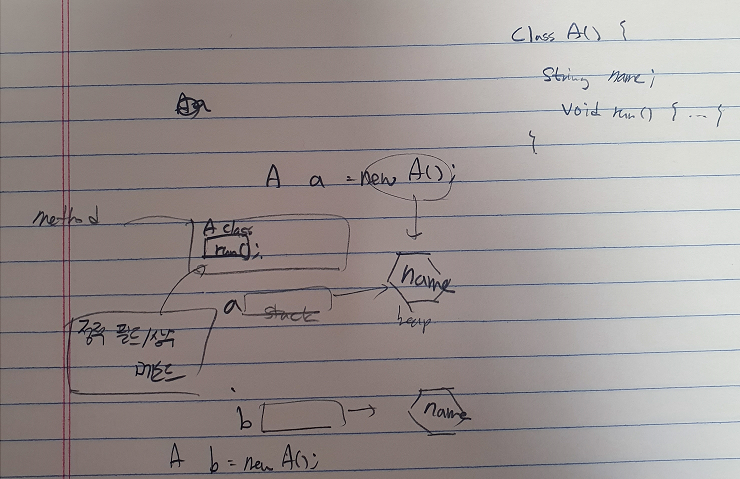 Class A() {
String name;
Void run() { ... {
}
A a = new A();
method
A class
run();
name
a
stack
heap
메소드
b
name
A b = new A();